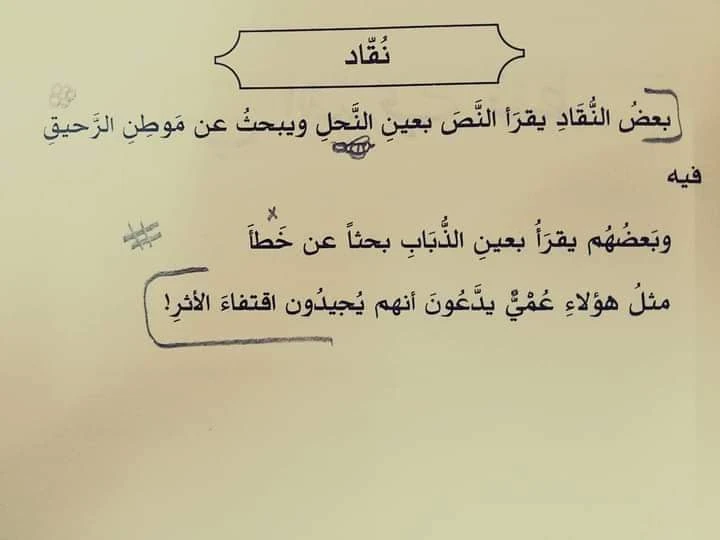 نُقّاد
بعضُ النُّقَادِ يقرَأ النَّصَ بعينِ النَّحلِ ويبحثُ عن مَوطِنِ الرَّحيقِ
فيه
وبَعضُهُم يقرَأُ بعينِ الذُّبَابِ بحثاً عن خَطأَ
مثلُ هؤلاءِ عُمْيٌّ يدَّعُونَ أنهم يُجيدُون اقتفاءَ الأثرِ!